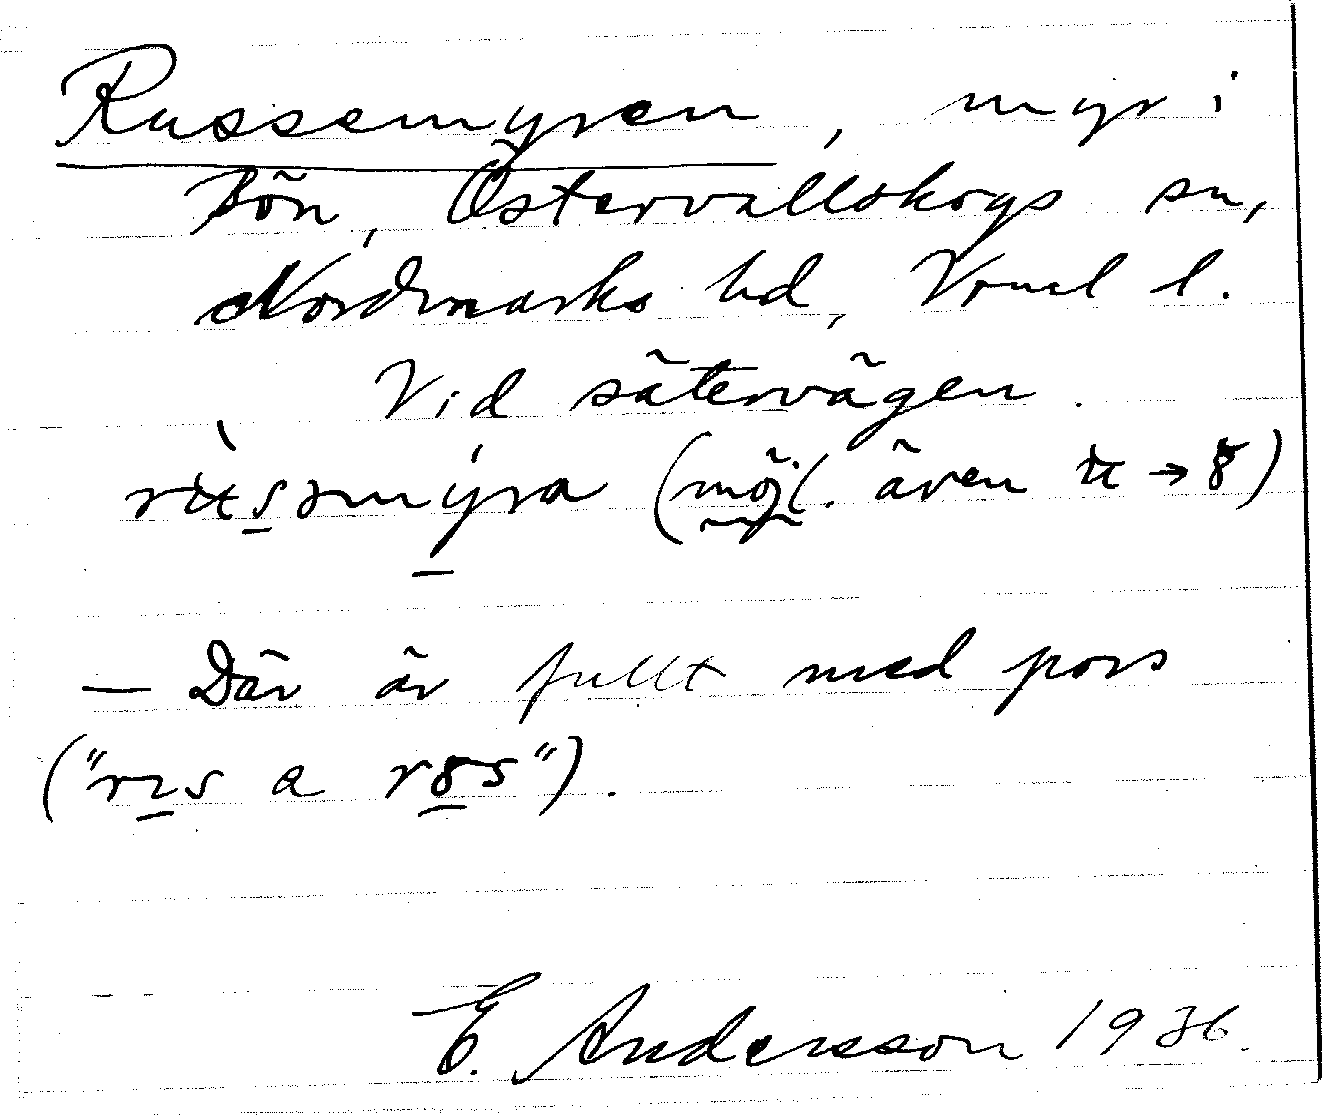 Russemyren, myr i
Bön, Östervallskogs sn,
Nordmarks hd, Vrml l.
Vid sätervägen.
(möjl. även u → 8)
— Där är fullt med pors
("rıs a r8s").
E. Andersson 1936.